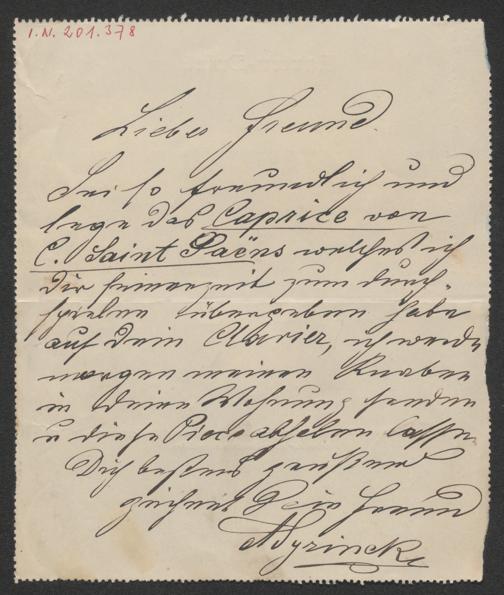 I.N. 201.378
Lieber Freund.
Sei so freundlich und
lege das Caprice von
C. Saint Saëns welches ich
dir seinerzeit zum durch-
spielen übergeben habe
auf dein Clavier, ich werde
morgen meinen Knaben
in deine Wohnung senden
u diese Piece abholen lassen.
Dich bestens grüßend
zeichnet Dein Freund